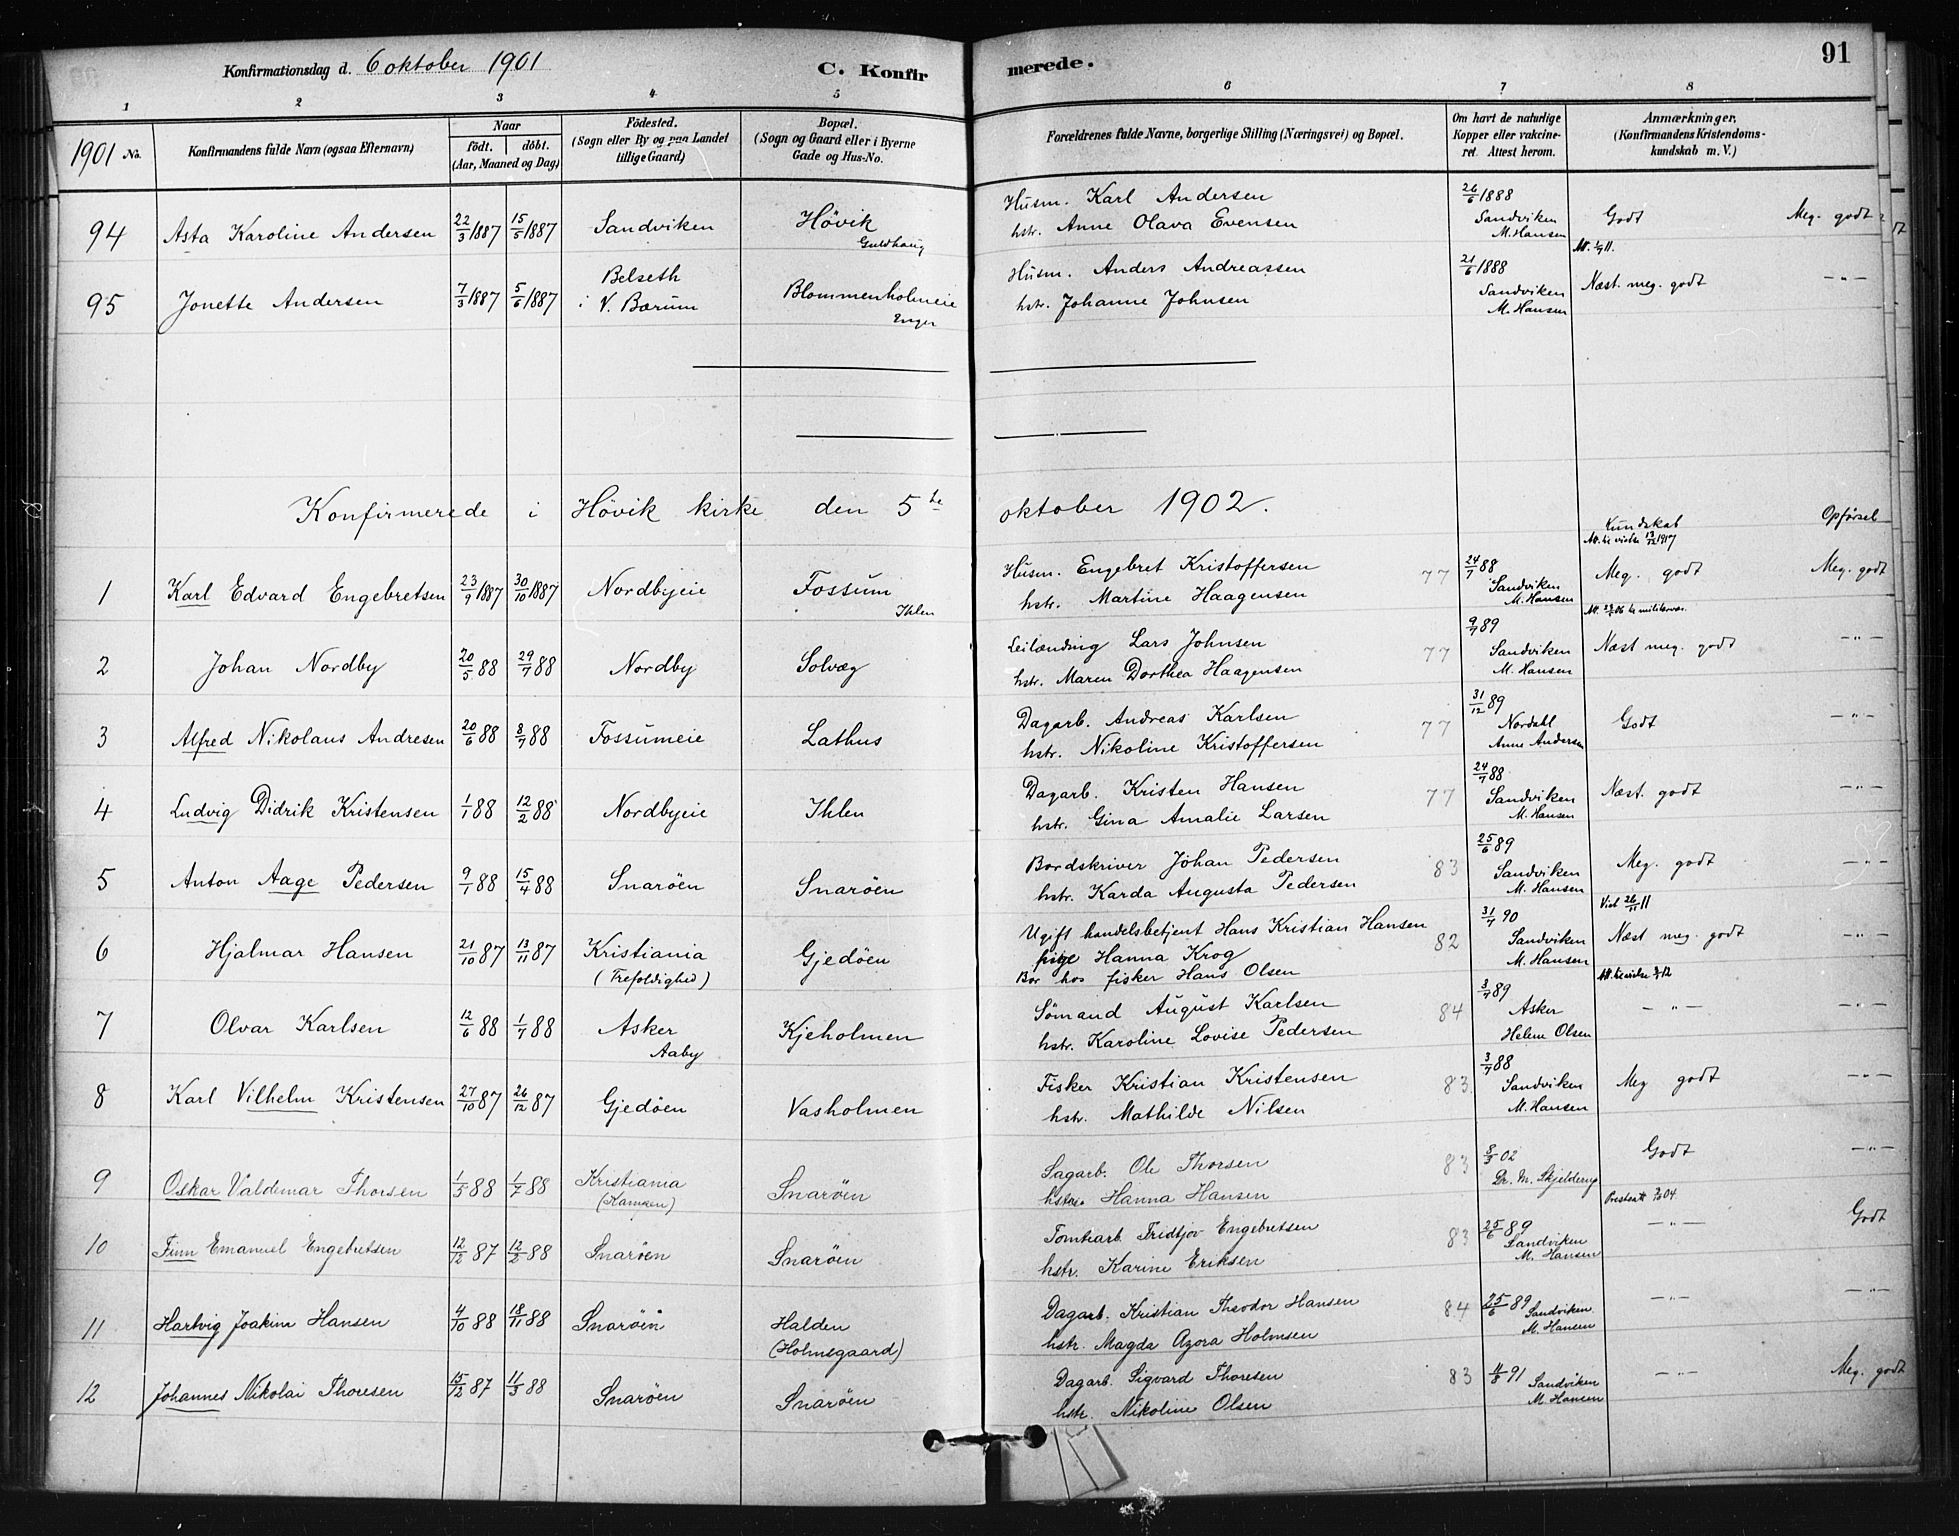 Konfirmationsdag d. 6 oktober 1901
C. Konfirmerede.
91
1 2 3 4 5 6 7 8
1901 No.
Konfirmandens fulde Navn (ogsaa Efternavn)
Naar
født. døbt.
(Aar, Maaned og Dag)
Fødested.
(Sogn eller By og paa Landet
tillige Gaard)
Bopæl.
(Sogn og Gaard eller i Byerne
Gade og Hus-No.
Forældrenes fulde Navne, borgerlige Stilling (Næringsvei) og Bopæl.
Om havt de naturlige
Kopper eller vakcine-
ret. Attest herom.
Anmærkninger,
(Konfirmandens Kristendoms-
kundskab m. V.)
94 Asta Karoline Andersen 22/3 1887 15/5 1887 Sandviken Høvik
Guldhaug
Husm. Karl Andersen
hstr. Anne Olava Evensen
26/6 1888
Sandviken
M. Hansen
Godt Meg. godt
95 Jonette Andersen 7/3 1887 5/6 1887 Belseth
i V. Bærum
Blommenholmeie
Enger
Husm. Anders Andreassen
hstr. Johanne Johnsen
21/6 1888
Sandviken
M. Hansen
Næst. meg. godt -"-
Konfirmerede i Høvik kirke den 5te oktober 1902.
Kundskab Opførsel
1 Karl Edvard Engebretsen 23/9 1887 30/10 1887 Nordbyeie Fossum
Ihlen
Husm. Engebret Kristoffersen
hstr. Martine Haagensen
77
24/7 88
Sandviken
M. Hansen
Meg. godt Meg. godt
2 Johan Nordby 20/5 88 29/7 88 Nordby Solvæg
Leilænding Lars Johnsen
hstr. Maren Dorthea Haagensen
77
9/7 89
Sandviken
M. Hansen
Næst meg. godt -"-
3 Alfred Nikolaus Andresen 20/6 88 8/7 88 Fossumeie Lathus
Dagarb. Andreas Karlsen
hstr. Nikoline Kristoffersen
77
31/12 89
Nordahl
Anne Andersen
Godt -"-
4 Ludvig Didrik Kristensen 1/1 88 12/2 88 Nordbyeie Ihlen
Dagarb. Kristen Hansen
hstr. Gina Amalie Larsen
77
24/7 88
Sandviken
M. Hansen
Næst. godt -"-
5 Anton Aage Pedersen 9/1 88 15/4 88 Snarøen Snarøen
Bordskriver Johan Pedersen
hstr. Karda Augusta Pedersen
83
25/6 89
Sandviken
M. Hansen
Meg. godt -"-
6 Hjalmar Hansen 21/10 87 13/11 87 Kristiania
(Trefoldighed)
Gjedøen
Ugift handelsbetjent Hans Kristian Hansen
pige Hanna Krog
Bor hos fisker Hans Olsen
82
31/7 90
Sandviken
M. Hansen
Vid 26/11 11
Næst meg. godt -"-
7 Olvar Karlsen 12/6 88 1/7 88 Asker
Aaby
Kjeholmen
Sømand August Karlsen
hstr. Karoline Lovise Pedersen
84
3/7 89
Asker
Helene Olsen
-"- -"-
8 Karl Vilhelm Kristensen 27/10 87 26/12 87 Gjedøen Vasholmen
Fisker Kristian Kristensen
hstr. Mathilde Nilsen
83
3/7 88
Sandviken
M. Hansen
Meg godt -"-
9 Oskar Valdemar Thorsen 1/5 88 1/7 88 Kristiania
Snarøen
Sagarb. Ole Thorsen
hstr. Hanna Hansen
83
8/3 02
Dr. M. Skjelderup
Godt -"-
10 Finn Emanuel Engebretsen 12/12 87 12/2 88 Snarøen Snarøen
Tomtearb. Fridtjov Engebretsen
hstr. Karine Eriksen
83
25/6 89
Sandviken
M. Hansen
-"- Godt
11 Hartvig Joakim Hansen 4/10 88 18/11 88 Snarøen Halden
(Holmsgaard)
Dagarb. Kristian Theodor Hansen
hstr. Magda Azora Holmsen
84
25/6 89
Sandviken.
M. Hansen
-"- -"-
12 Johannes Nikolai Thoresen 15/12 87 11/3 88 Snarøen Snarøen
Dagarb. Sigvard Thoresen
hstr. Nikoline Olsen
83
4/8 91
Sandviken
M. Hansen
-"- Meg. godt